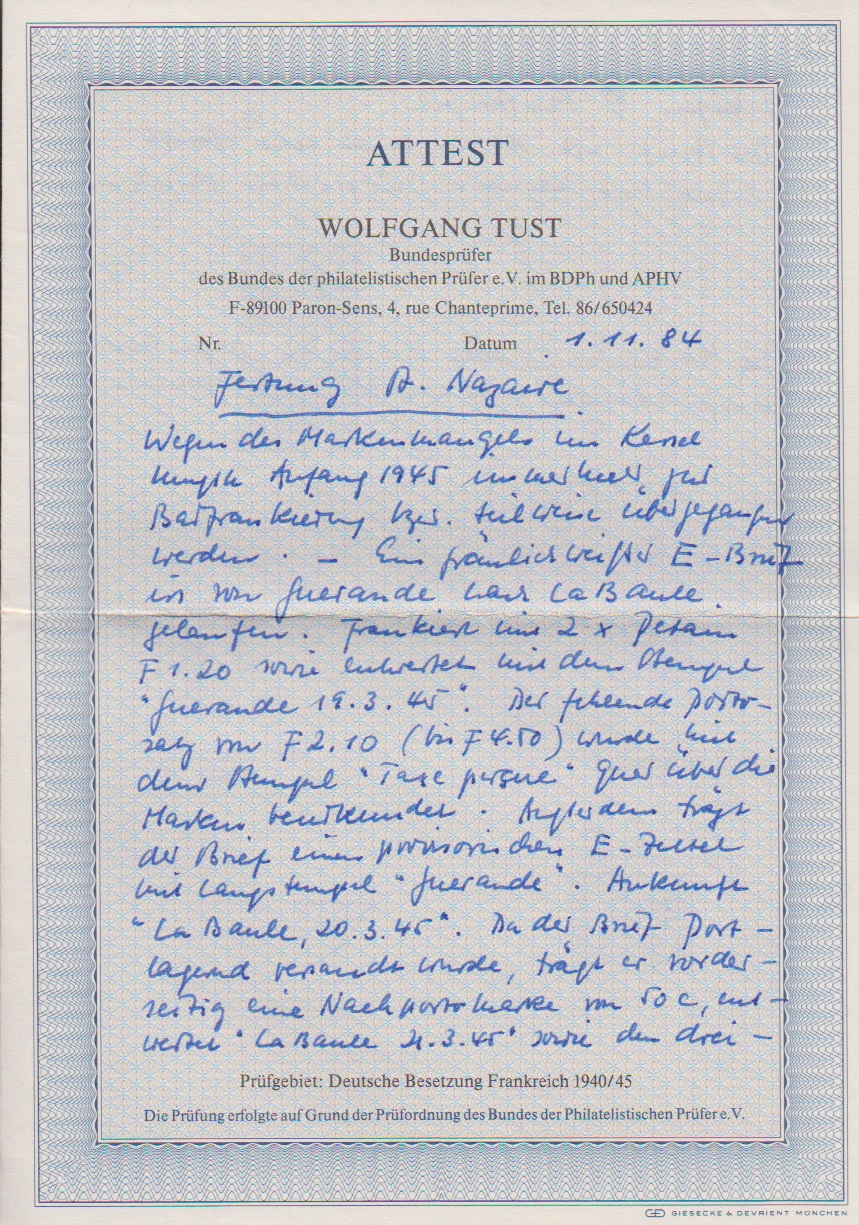 ATTEST
WOLFGANG TUST
Bundesprüfer
des Bundes der philatelistischen Prüfer e.V. im BDPh und APHV
F-89100 Paron-Sens, 4, rue Chanteprime, Tel. 86/650424
Nr. Datum 1.11.84
Festung St. Nazaire
Wegen des Markenmangels im Kessel
Anfang 1945 immer mehr zur
Barfrankierung bzw. teilweise übergegangen
werden. – Ein E-Brief
ist von Guerande nach La Baule
gelaufen. Frankiert mit 2 x Petain
F 1.20 sowie entwertet mit dem Stempel
"Guerande 19.3.45". Der fehlende Porto-
satz von F 2.10 (bis F 4.50) wurde mit
dem Stempel "Taxe perçue" quer über die
Marken beurkundet. Außerdem trägt
der Brief einen provisorischen E-Zettel
mit Langstempel "Guerande". Ankunft
"La Baule, 20.3.45". Da der Brief Post-
lagernd versandt wurde, trägt er vorder-
seitig eine Nachportomarke von 50 c, ent-
wertet "La Baule 21.3.45" sowie den drei-
Prüfgebiet: Deutsche Besetzung Frankreich 1940/45
Die Prüfung erfolgte auf Grund der Prüfordnung des Bundes der Philatelistischen Prüfer e.V.
GIESECKE & DEVRIENT MÜNCHEN